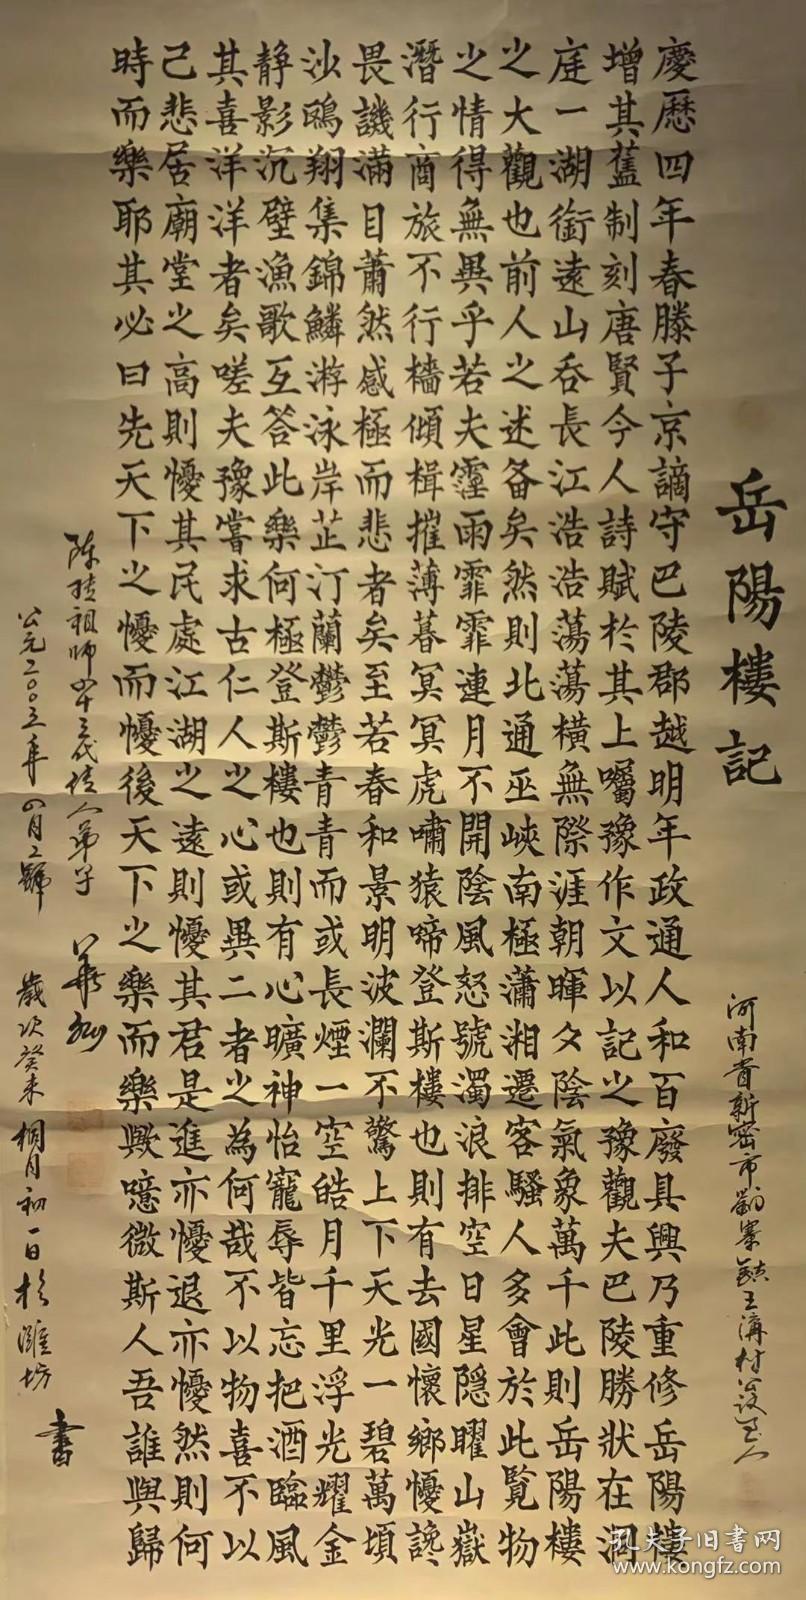 岳陽樓記
慶厯四年春滕子京謫守巴陵郡越明年政通人和百廢具興乃重修岳陽樓
增其舊制刻唐賢今人詩賦於其上囑豫作文以記之豫觀夫巴陵勝狀在洞
庭一湖銜遠山吞長江浩浩蕩蕩橫無際涯朝暉夕陰氣象萬千此則岳陽樓
之大觀也前人之述备矣然則北通巫峽南極瀟湘遷客騷人多會於此覽物
之情得無異乎若夫霪雨霏霏連月不開陰風怒號濁浪排空日星隱曜山嶽
潛行商旅不行檣傾楫摧薄暮冥冥虎嘯猿啼登斯樓也則有去國懷鄉懮讒
畏譏滿目蕭然感極而悲者矣至若春和景明波瀾不驚上下天光一碧萬頃
沙鷗翔集錦鱗游泳岸芷汀蘭鬱鬱青青而或長煙一空皓月千里浮光耀金
静影沉壁漁歌互答此樂何極登斯樓也則有心曠神怡寵辱皆忘把酒臨風
其喜洋洋者矣嗟夫豫嘗求古仁人之心或異二者之為何哉不以物喜不以
己悲居廟堂之高則懮其民處江湖之遠則懮其君是進亦懮退亦懮然則何
時而樂耶其必曰先天下之懮而懮後天下之樂而樂歟噫微斯人吾誰與歸
河南省新密市劉寨鎮王溝村
陳摶祖師四十三代傳人弟子 書
公元二〇〇三年四月二號 歲次癸未桐月初一日於濰坊
孔夫子旧书网
www.kongfz.com